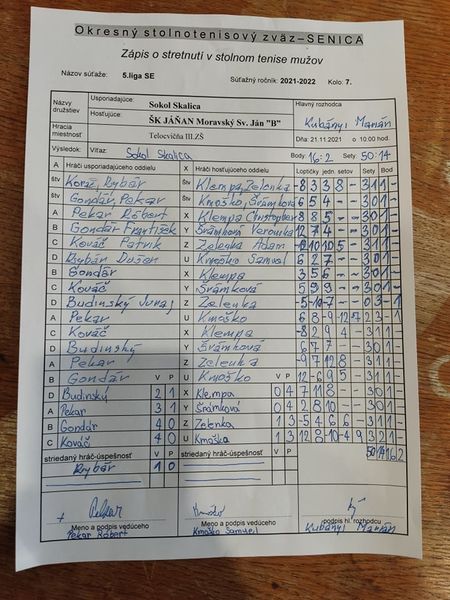 Okresný stolnotenisový zväz – SENICA
Zápis o stretnutí v stolnom tenise mužov
Názov súťaže: 5.liga SE Súťažný ročník: 2021-2022 Kolo: 7.
Názvy družstiev Usporiadajúce: Sokol Skalica Hlavný rozhodca
Hosťujúce: ŠK JÁŇAN Moravský Sv. Ján "B" Kubányi Marián
Hracia miestnosť Telocvičňa III.ZŠ Dňa: 21.11.2021 o 10:00 hod.
Výsledok: Víťaz: Sokol Skalica Body: 16:2 Sety: 50:14
A Hráči usporiadajúceho oddielu X Hráči hosťujúceho oddielu Loptičky jedn. setov Sety Bod
štv Kováč, Rybár štv Klempa, Zelenka -8 3 3 8 - 3 1 1 -
štv Gondár, Pekar štv Kmoško, Šrámková 6 5 4 - - 3 0 1 -
A Pekar Róbert X Klempa Christopher 8 8 5 - - 3 0 1 -
B Gondár František Y Šrámková Veronika 12 7 4 - - 3 0 1 -
C Kováč Patrik Z Zelenka Adam
D Rybár Dušan U Kmoško Samuel 6 2 7 - - 3 0 1 -
B Gondár X Klempa 3 5 6 - - 3 0 1 -
C Kováč Y Šrámková 5 9 9 - - 3 0 1 -
D Budinský Juraj Z Zelenka -5 -10 -7 - - 0 3 - 1
A Pekar U Kmoško 6 8 -9 -12 -7 2 3 - 1
C Kováč X Klempa -8 2 9 4 - 3 1 1 -
D Budinský Y Šrámková 6 7 7 - - 3 0 1 -
A Pekar Z Zelenka -9 7 12 8 - 3 1 1 -
B Gondár V P U Kmoško V P 12 -6 9 5 - 3 1 1 -
D Budinský 2 1 X Klempa 0 4 7 11 8 - - 3 0 1 -
A Pekar 3 1 Y Šrámková 0 4 2 8 10 - - 3 0 1 -
B Gondár 4 0 Z Zelenka 1 3 -5 4 6 6 - 3 1 1 -
C Kováč 4 0 U Kmoško 1 3 12 8 -10 -4 9 3 2 1 -
striedaný hráč-úspešnosť V P striedaný hráč-úspešnosť V P 50 14 16 2
Rybár 1 0
Meno a podpis vedúceho Meno a podpis vedúceho podpis hl. rozhodcu
Pekar Róbert Kmoško Samuel Kubányi Marián